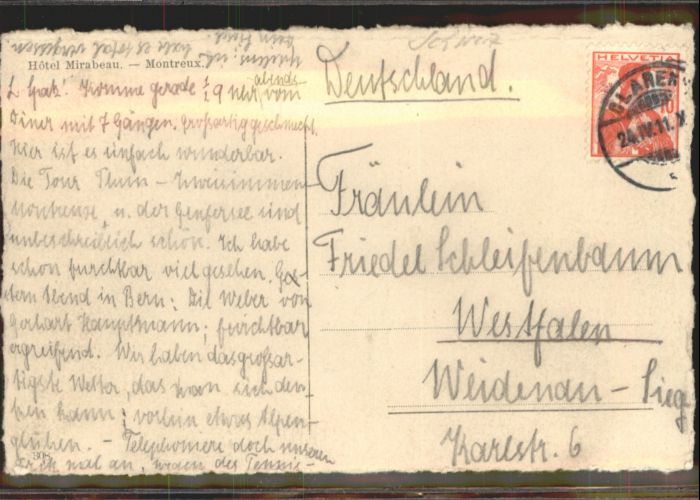 Hôtel Mirabeau. — Montreux.
L. Spatz! Komme gerade ½ 9 Uhr abends vom
Diner mit 7 Gängen. Großartig geschmeckt.
Hier ist es einfach wunderbar.
Die Tour Thun - Zweisimmen
Montreux u. der Genfersee sind
unbeschreiblich schön. Ich habe
schon furchtbar viel gesehen. Ges-
tern Abend in Bern: Die Weber von
Gerhart Hauptmann; furchtbar
ergreifend. Wir haben das großar-
tigste Wetter, das man sich den-
ken kann; vorhin etwas Alpen-
glühen. - Telephoniere doch unseren
mal an, wegen des Tennis-
habe es total vergessen
308
Schweiz
Deutschland.
Fräulein
Friedel Schleifenbaum
Westfalen
Weidenau - Sieg
Karlstr. 6
HELVETIA
10
CLARENS
24.IV.11.X